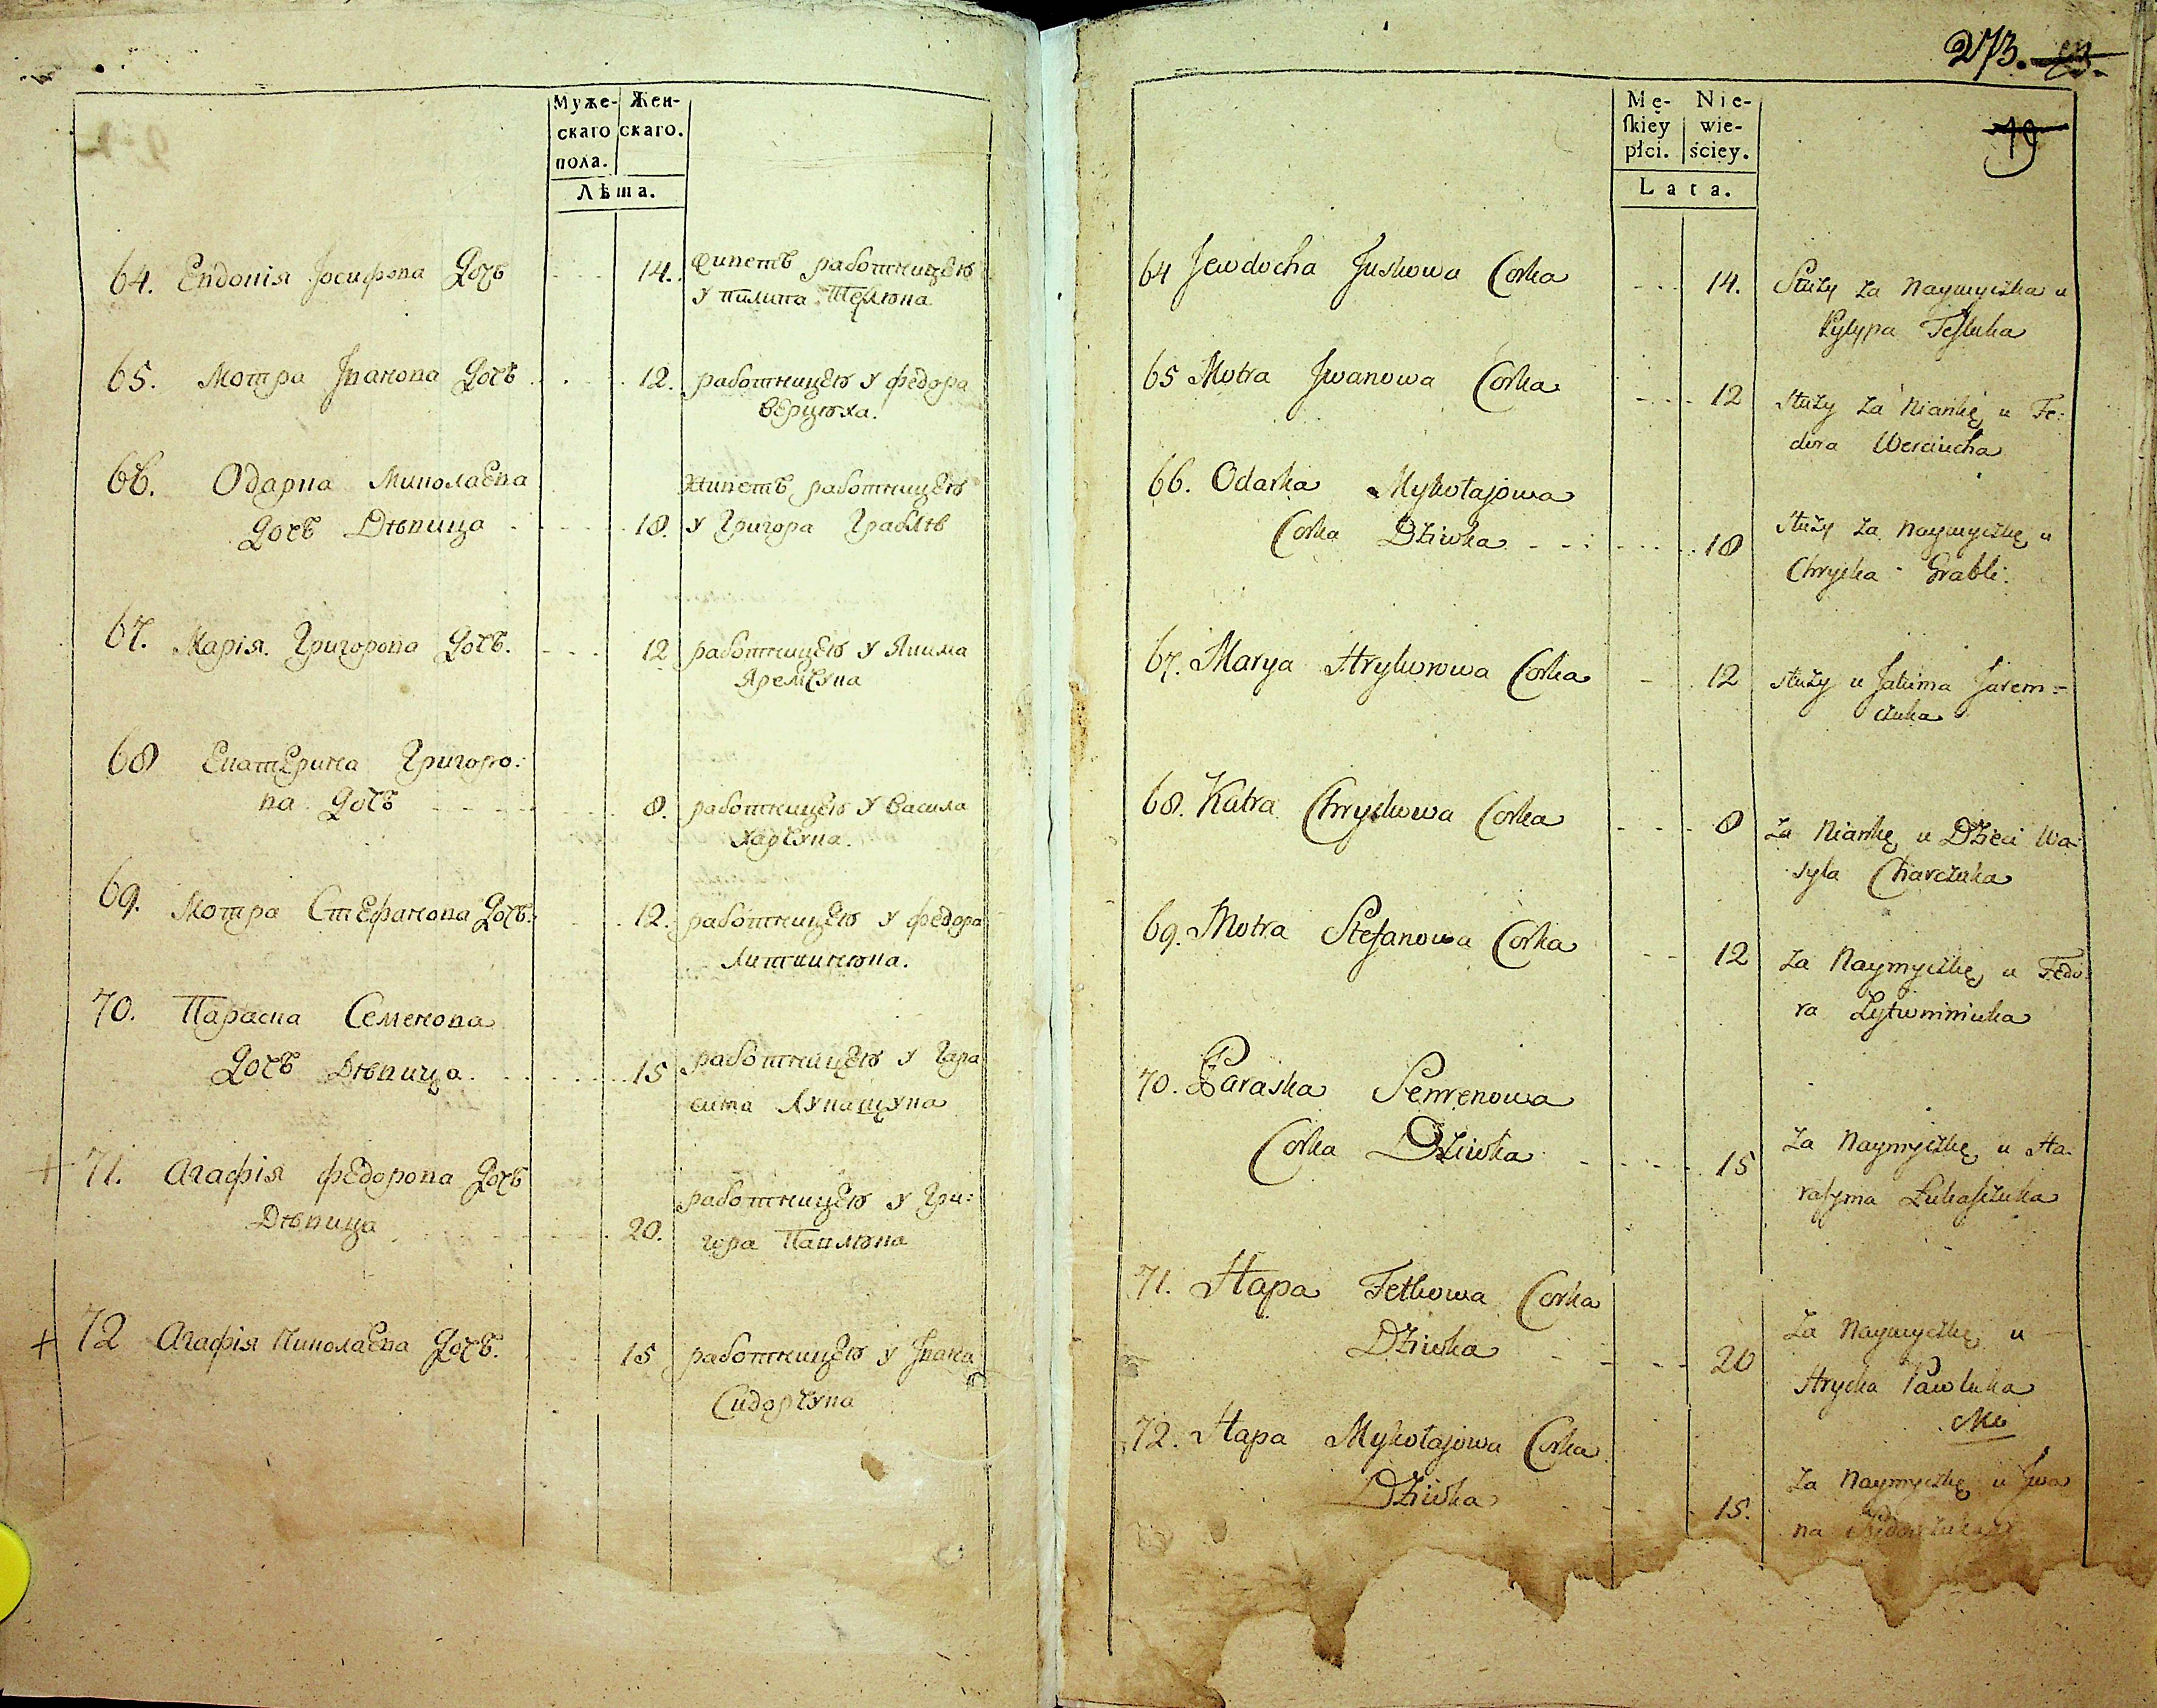 Муже-
скаго
пола.
Жен-
скаго.
Лѣта.
64. Евдокія Іосифова Дочь 14. живетъ работницею
у Пилипа Теслюка
65. Мотра Іванова Дочь 12. работницею у Федора
Верцюха.
66. Одарка Миколаева живетъ работницею
Дочь Дѣвица 18. у Григора Граблѣ
67. Марія Григорова Дочь. 12 работницею у Якима
Яремчука
68 Екатерина Григоро:
ва Дочь 8. работницею у Васила
Харчука.
69. Мотра Стефанова Дочь. 12. работницею у Федора
Литвинюка.
70. Параска Семенова
Дочь Дѣвица. 15 работницею у Гара
сима Лукащука
+ 71. Агафія Федорова Дочь
Дѣвица 20. работницею у Гри:
гора Павлюка
+ 72 Агафія Николаева Дочь. 15 работницею у Івана
Сидорчука
273.
19
Mę-
ſkiey
płci.
Nie-
wie-
ściey.
Lata.
64 Jewdocha Juskowa Corka 14. Służy za Naymyczka u
Pylypa Tesluka
65 Motra Jwanowa Corka 12 służy za Niankę u Fe:
dora Werciucha
66. Odarka Mykołajowa
Corka Dziwka 18 służy za Naymyczkę u
Chrycka Grabli.
67. Marya Hryhorowa Corka 12 służy u Jakima Jarem=
czuka
68. Katra Chryckowa Corka 8 za Niankę u Dzieci Wa:
syla Charczuka
69. Motra Stefanowa Corka 12 za Naymyczkę u Fedo:
ra Lytwiniuka
70. Paraska Semenowa
Corka Dziwka 15 za Naymyczkę u Ha:
rasyma Łukaszczuka
71. Hapa Fetkowa Corka
Dziwka 20 za Naymyczkę u
Hrycka Pawluka
72. Hapa Mykołajowa Corka
Dziwka 15. za Naymyczkę u Jwa
na Sidorczuka